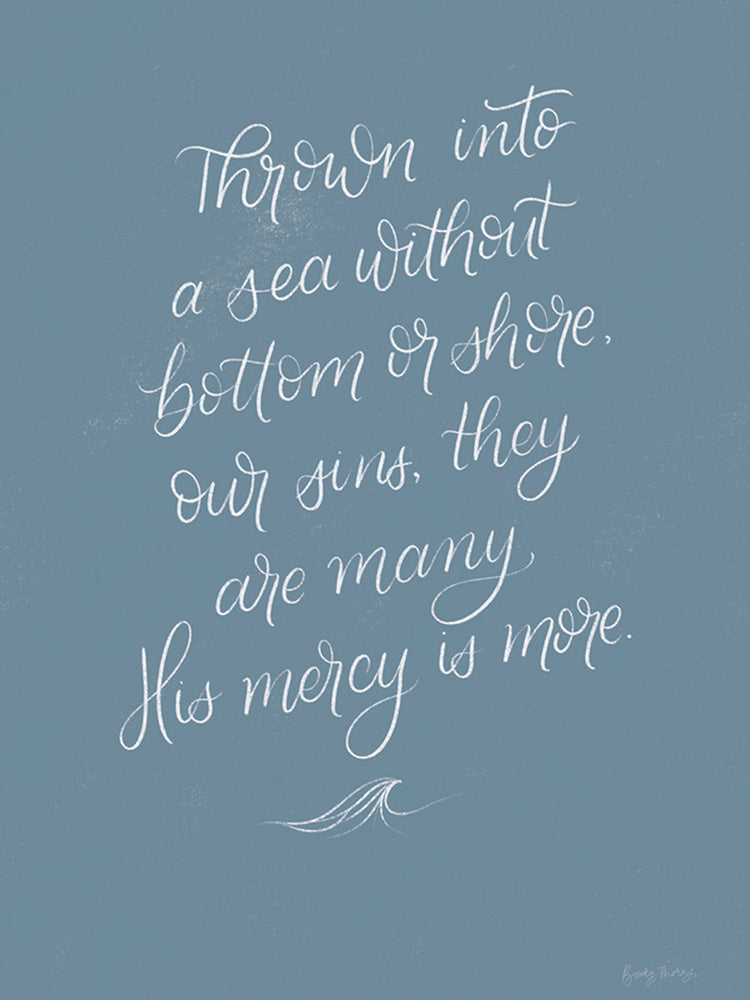 Thrown into
a sea without
bottom or shore,
our sins, they
are many,
His mercy is more.
Becky Thorns